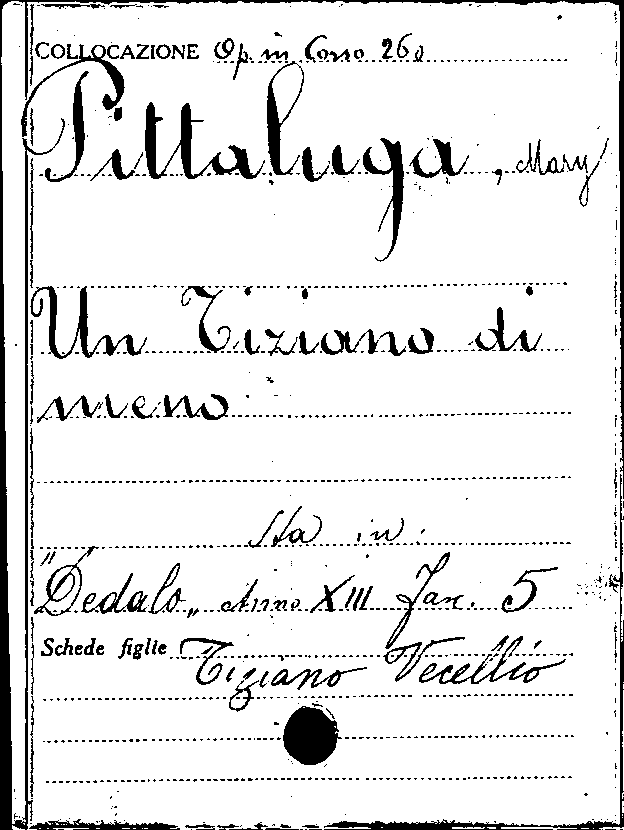 COLLOCAZIONE Op. in Corso 260
Pittaluga, Mary
Un Tiziano di
meno
Sta in:
"Dedalo„ Anno XIII Fasc. 5
Schede figlie Tiziano Vecellio